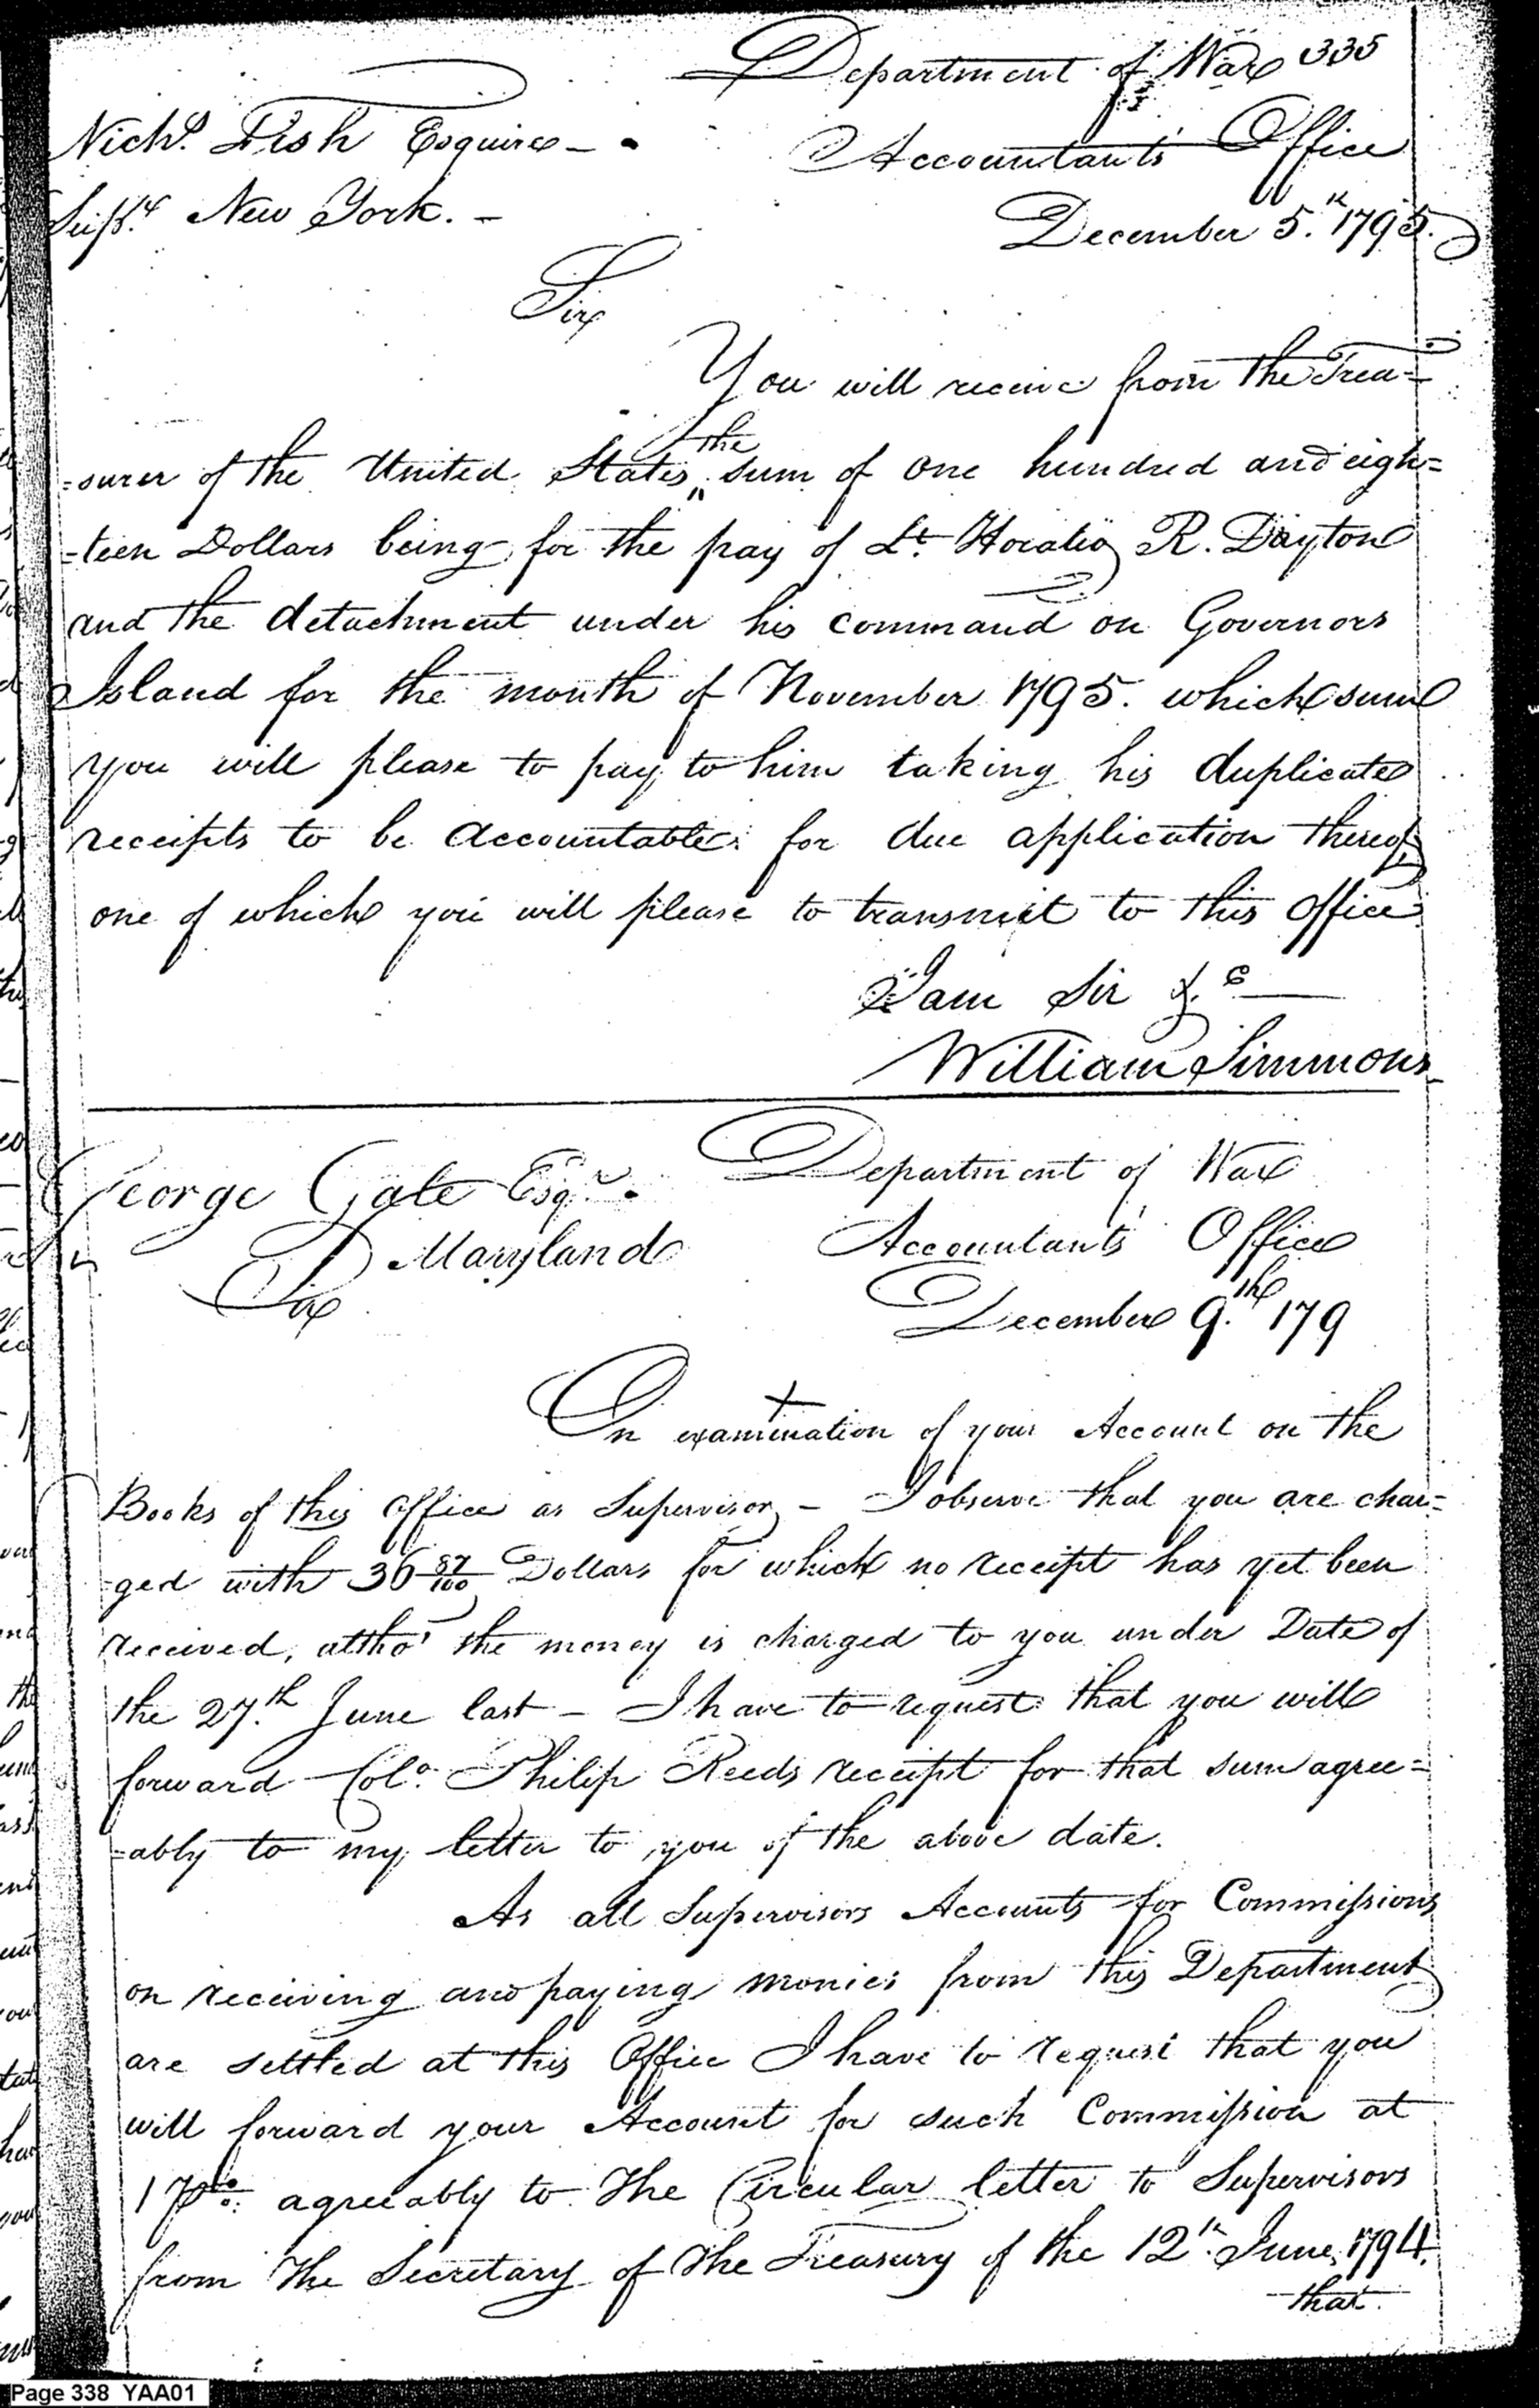 335
Department of War
Nichs. Fish Esquire - .
Accountants Office
Supr. New York. -
December 5.th 1795.
Sir
You will receive from the Trea=
=surer of the United States the sum of one hundred and eigh=
=teen Dollars being for the pay of Lt. Horatio R. Dayton
and the detachment under his command on Governors
Island for the month of November 1795. which sum
you will please to pay to him taking his duplicate
receipts to be accountable for due application thereof,
one of which you will please to transmit to this office
I am Sir &c
William Simmons
George Gale Esqr.
Department of War
Maryland
Accountants Office
Sir
December 9.th 179
On examination of your Account on the
Books of this Office as Supervisor - I observe that you are char=
=ged with 36 87/100 Dollars for which no receipt has yet been
received, altho' the money is charged to you under Date of
the 27.th June last - I have to request that you will
forward Colo. Philip Reeds receipt for that sum agree=
=ably to my letter to you of the above date.
As all Supervisors Accounts for Commissions
on receiving and paying monies from this Department
are settled at this Office I have to request that you
will forward your Account for such Commission at
1 pCt. agreeably to the Circular letter to Supervisors
from the Secretary of the Treasury of the 12th. June, 1794.
that
Page 338 YAA01